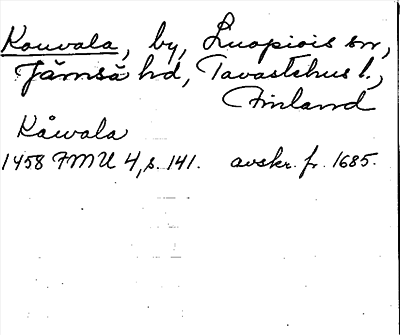 Kouvala, by, Luopiois sn,
Jämsä hd, Tavastehus l.,
Finland
Kåwala
1458 FMU 4, s. 141. avskr. fr. 1685.